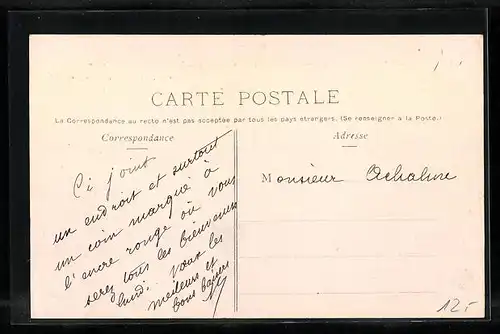 CARTE POSTALE
La Correspondance au recto n'est pas acceptée par tous les pays étrangers. (Se renseigner à la Poste.)
Correspondance
Adresse
Ci joint
un endroit et surtout
un coin marqué à
l'encre rouge où vous
serez tous les bienvenus
lundi. Vous les
meilleurs et
bons baisers
Monsieur
12.-